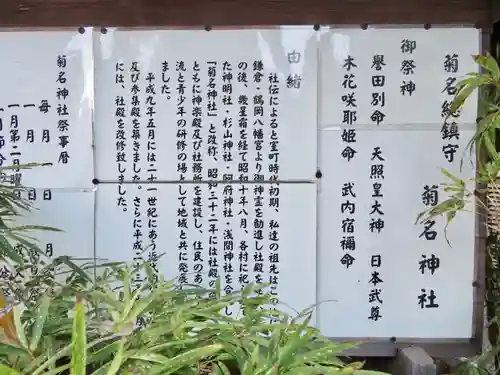 菊名総鎮守 菊名神社
御祭神
誉田別命 天照皇大神 日本武尊
木花咲耶姫命 武内宿禰命
由緒
社伝によると室町時代初期、私達の祖先はこの
鎌倉・鶴岡八幡宮より御神霊を勧進し社殿を
の後、幾星霜を経て昭和十年八月、各村に祀
た神明社・杉山神社・阿府神社・浅間神社を合
「菊名神社」と改称、昭和三十二年に
ともに神楽殿及び社務所を建設し、住民のあ
流と青少年の研修の場として地域と共に発
ました。
平成九年五月には二十一世紀にあう近
及び参集殿を築きました。さらに平成二十
には、社殿を改修致しました。
菊名神社祭事暦
毎月
一月
一月第二月曜日